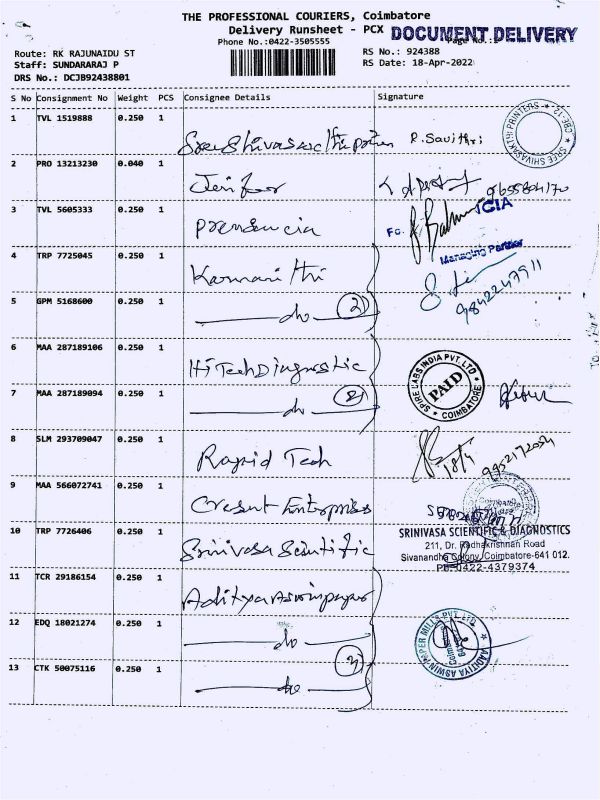 THE PROFESSIONAL COURIERS, Coimbatore
Delivery Runsheet - PCX DOCUMENT DELIVERY
Phone No.:0422-3505555
Route: RK RAJUNAIDU ST
RS No.: 924388
Staff: SUNDARARAJ P
RS Date: 18-Apr-2022
DRS No.: DCJB92438801
S No Consignment No Weight PCS Consignee Details Signature
1 TVL 1519888 0.250 1 R. Savithri
SREE SHIVASAKTHI PRINTERS ★ CBE-12 ★
2 PRO 13213230 0.040 1 Jenifer
3 TVL 5605333 0.250 1
Fo.
Managing Partner
4 TRP 7725045 0.250 1
9842247911
5 GPM 5168600 0.250 1 do 2
6 MAA 287189106 0.250 1 HiTech Diagnostic
SPIRE LABS INDIA PVT. LTD ★ COIMBATORE ★
PAID
7 MAA 287189094 0.250 1 do
8 SLM 293709047 0.250 1 Rapid Tech
18/4
9952172054
9 MAA 566072741 0.250 1 Cresent Enterprises
10 TRP 7726406 0.250 1 Srinivasa Scientific
SRINIVASA SCIENTIFIC & DIAGNOSTICS
211, Dr. Radhakrishnan Road
Sivanandha Colony, Coimbatore-641 012.
PH:0422-4379374
11 TCR 29186154 0.250 1 Aditya Aswin paper
12 EDQ 18021274 0.250 1 do
AADITYA ASWIN PAPER MILLS PVT. LTD
3
13 CTK 50075116 0.250 1 do